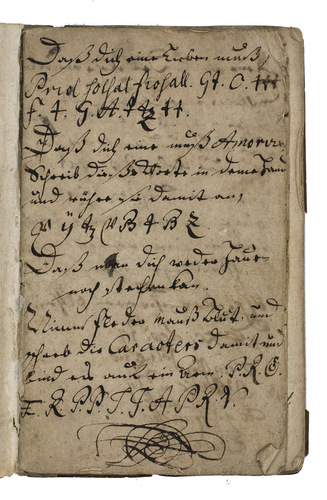 Daß dich eine Lieben muß
Prid solsal frosall. Gt. O. ttt
F. 4. G. A.
Daß dich eine muß Amoriren
Schreib dieße Worte in deine Hand
und rühre sie damit an,
B 4 B Z
Daß man dich weder Hauen
noch stechen kan.
Nimm fleder mauß Blut. und
schreib die Caracters damit und
bind es auf ein arm. P. R. G.
E. R. P. P. I. I. A. P. R. V.